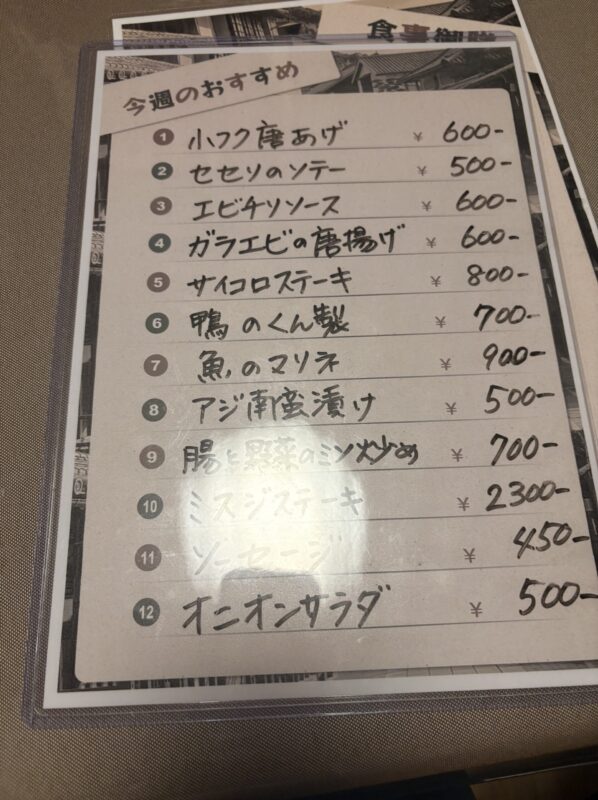 食事御膳
今週のおすすめ
1 小フク唐あげ ¥ 600-
2 セセリのソテー ¥ 500-
3 エビチリソース ¥ 600-
4 ガラエビの唐揚げ ¥ 600-
5 サイコロステーキ ¥ 800-
6 鴨のくん製 ¥ 700-
7 魚のマリネ ¥ 900-
8 アジ南蛮漬け ¥ 500-
9 腸と野菜のミソ炒め ¥ 700-
10 ミスジステーキ ¥ 2300-
11 ソーセージ ¥ 450-
12 オニオンサラダ ¥ 500-